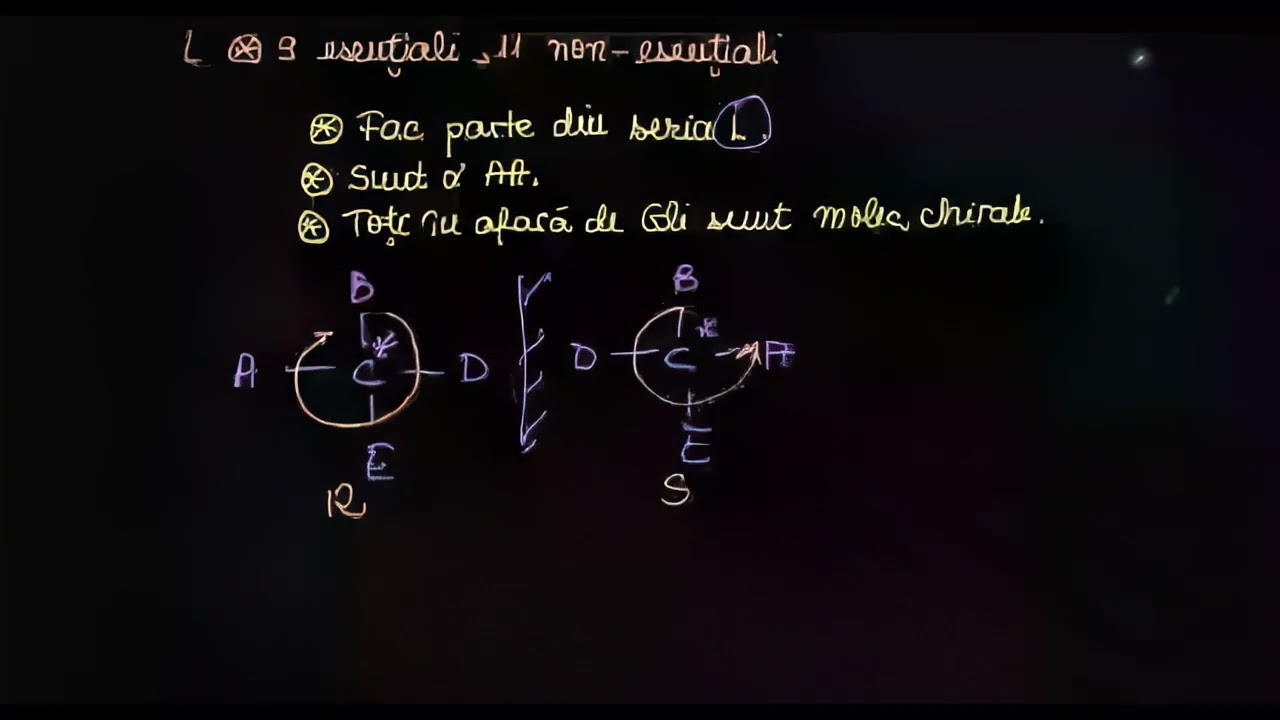 L ⊛ 9 esențiali, 11 non-esențiali
⊛ Fac parte din seria L.
⊛ Sunt α AA.
⊛ Toți în afară de Gli sunt molec, chirale.
B B
A C* D D C* A
E E
R S